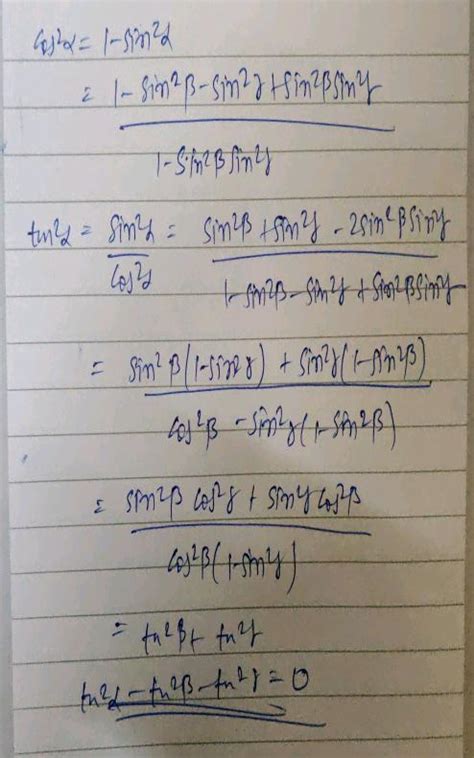 cos²α = 1-sin²α
= 1-sin²β-sin²γ+sin²βsin²γ
1-sin²βsin²γ
tan²α = sin²α = sin²β+sin²γ-2sin²βsin²γ
cos²α 1-sin²β-sin²γ+sin²βsin²γ
= sin²β(1-sin²γ)+sin²γ(1-sin²β)
cos²β-sin²γ(1-sin²β)
= sin²β cos²γ+sin²γ cos²β
cos²β(1-sin²γ)
= tn²β+tn²γ
tn²α-tn²β-tn²γ=0